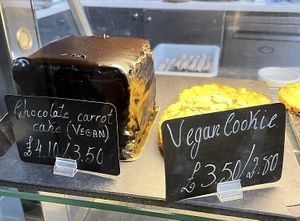 Chocolate carrot
cake (VEGAN)
£4.10/3.50
Vegan Cookie
£3.50/2.80